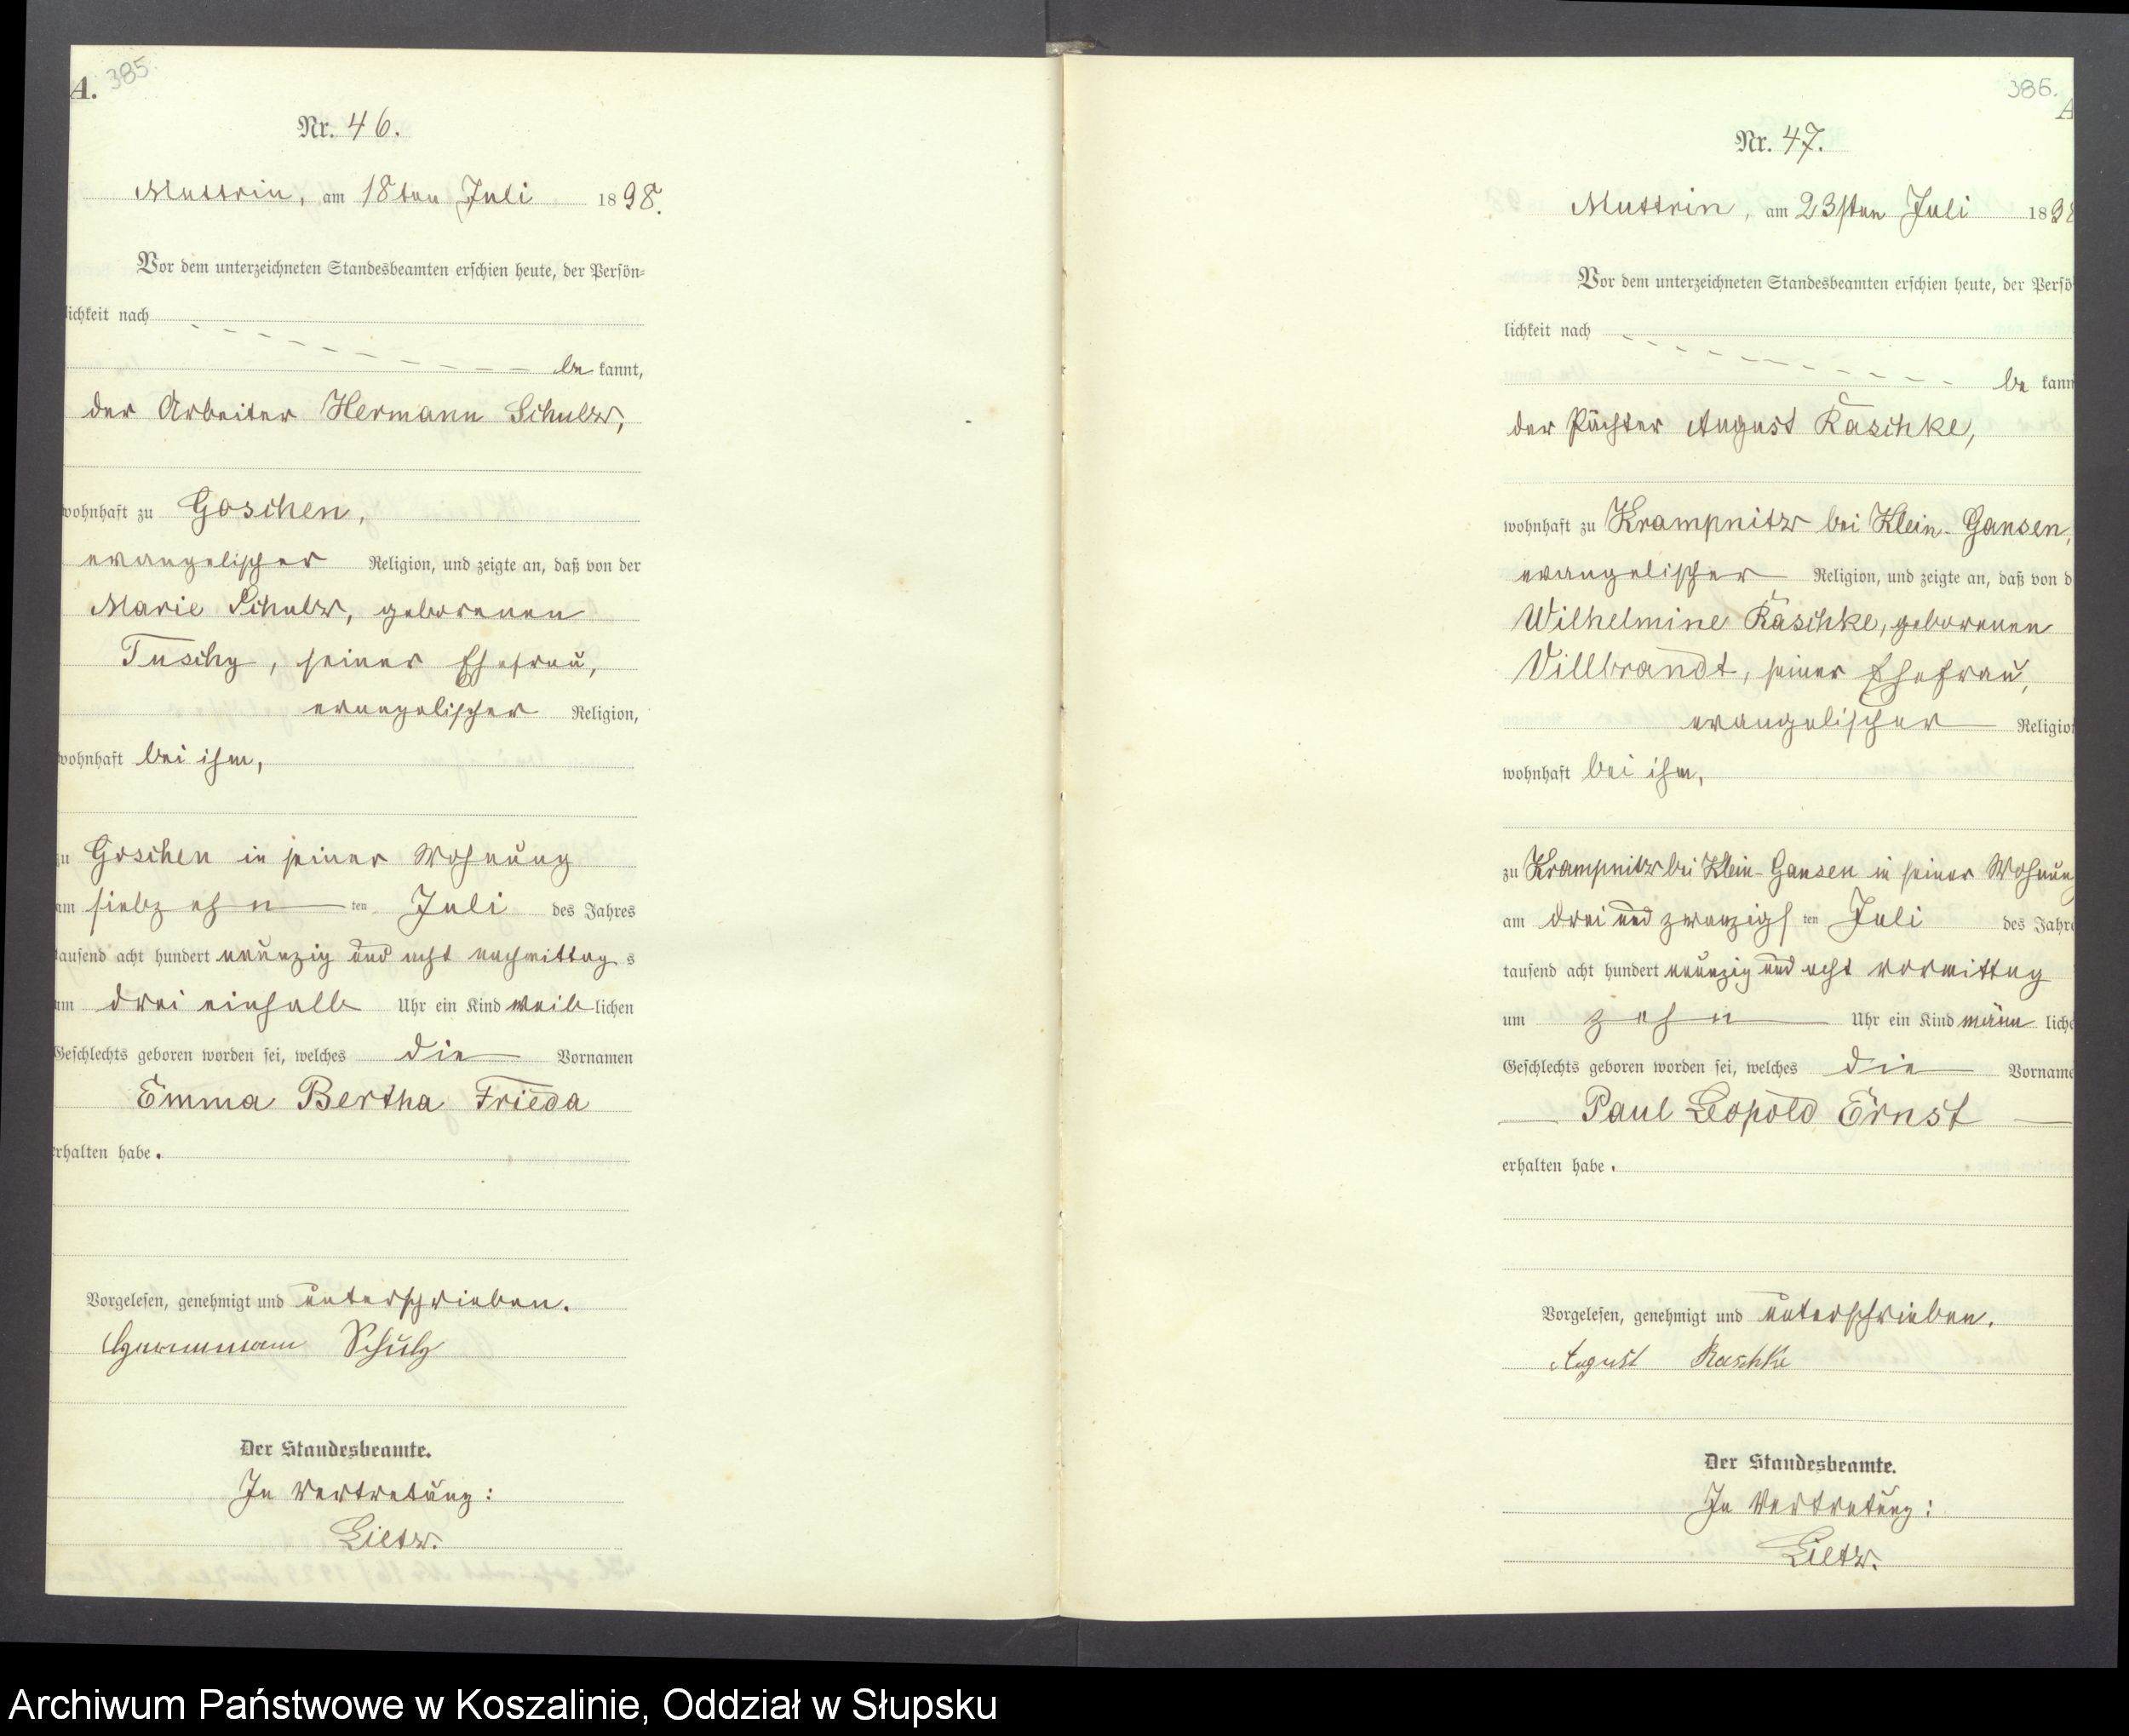 A. 385.
Nr. 46.
Muttrin, am 18ten Juli 1898.
Vor dem unterzeichneten Standesbeamten erschien heute, der Persön-
lichkeit nach
be kannt,
der Arbeiter Hermann Schulz,
wohnhaft zu Goschen,
evangelischer Religion, und zeigte an, daß von der
Marie Schulz, geborenen
Tuschy, seiner Ehefrau,
evangelischer Religion,
wohnhaft bei ihm,
zu Goschen in seiner Wohnung
am siebzehn ten Juli des Jahres
tausend acht hundert neunzig und acht nachmittag s
um drei einhalb Uhr ein Kind weib lichen
Geschlechts geboren worden sei, welches die Vornamen
Emma Bertha Frieda
erhalten habe.
Vorgelesen, genehmigt und unterschrieben.
Herrmann Schulz
Der Standesbeamte.
In Vertretung:
Lietz.
386.
A
Nr. 47.
Muttrin, am 23sten Juli 1898
Vor dem unterzeichneten Standesbeamten erschien heute, der Persö
lichkeit nach
be kann
der Pächter August Räschke,
wohnhaft zu Krampnitz bei Klein-Gansen,
evangelischer Religion, und zeigte an, daß von d
Wilhelmine Räschke, geborenen
Villbrandt, seiner Ehefrau,
evangelischer Religion
wohnhaft bei ihm,
zu Krampnitz bei Klein-Gansen in seiner Wohnung
am drei und zwanzigs ten Juli des Jahre
tausend acht hundert neunzig und acht vormittag
um zehn Uhr ein Kind männ liche
Geschlechts geboren worden sei, welches die Vorname
Paul Leopold Ernst
erhalten habe.
Vorgelesen, genehmigt und unterschrieben.
August Raschke
Der Standesbeamte.
In Vertretung:
Lietz.
Archiwum Państwowe w Koszalinie, Oddział w Słupsku